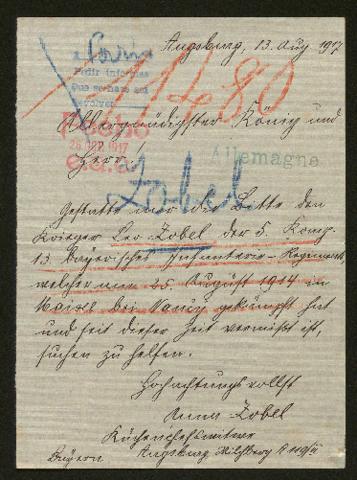 Augsburg, 13. Aug 1917
Paris
Pedir informes
que se hara asi
devolver
11480
Allergnädigster König und
Recibo
28 SEP. 1917
Herr!
Allemagne
Zobel
Gestatte mir die Bitte den
Krieger Leo Zobel der 5. Komp.
13. bayerisches Infanterie-Regiment
welcher am 25. August 1914 in
bei Nancy gekämpft hat
und seit dieser Zeit vermisst ist,
suchen zu helfen.
Hochachtungsvollst
Anna Zobel
Küchenchefswitwe
Bayern Augsburg Milchberg A 119/II